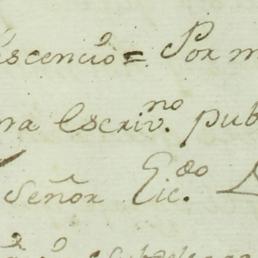 scencio = Por m
na Escriv.no pub
Señor Lic.do